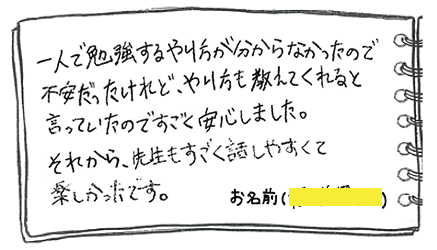 一人で勉強するやり方が分からなかったので
不安だったけれど、やり方も教えてくれると
言っていたのですごく安心しました。
それから、先生もすごく話しやすくて
楽しかったです。
お名前( )